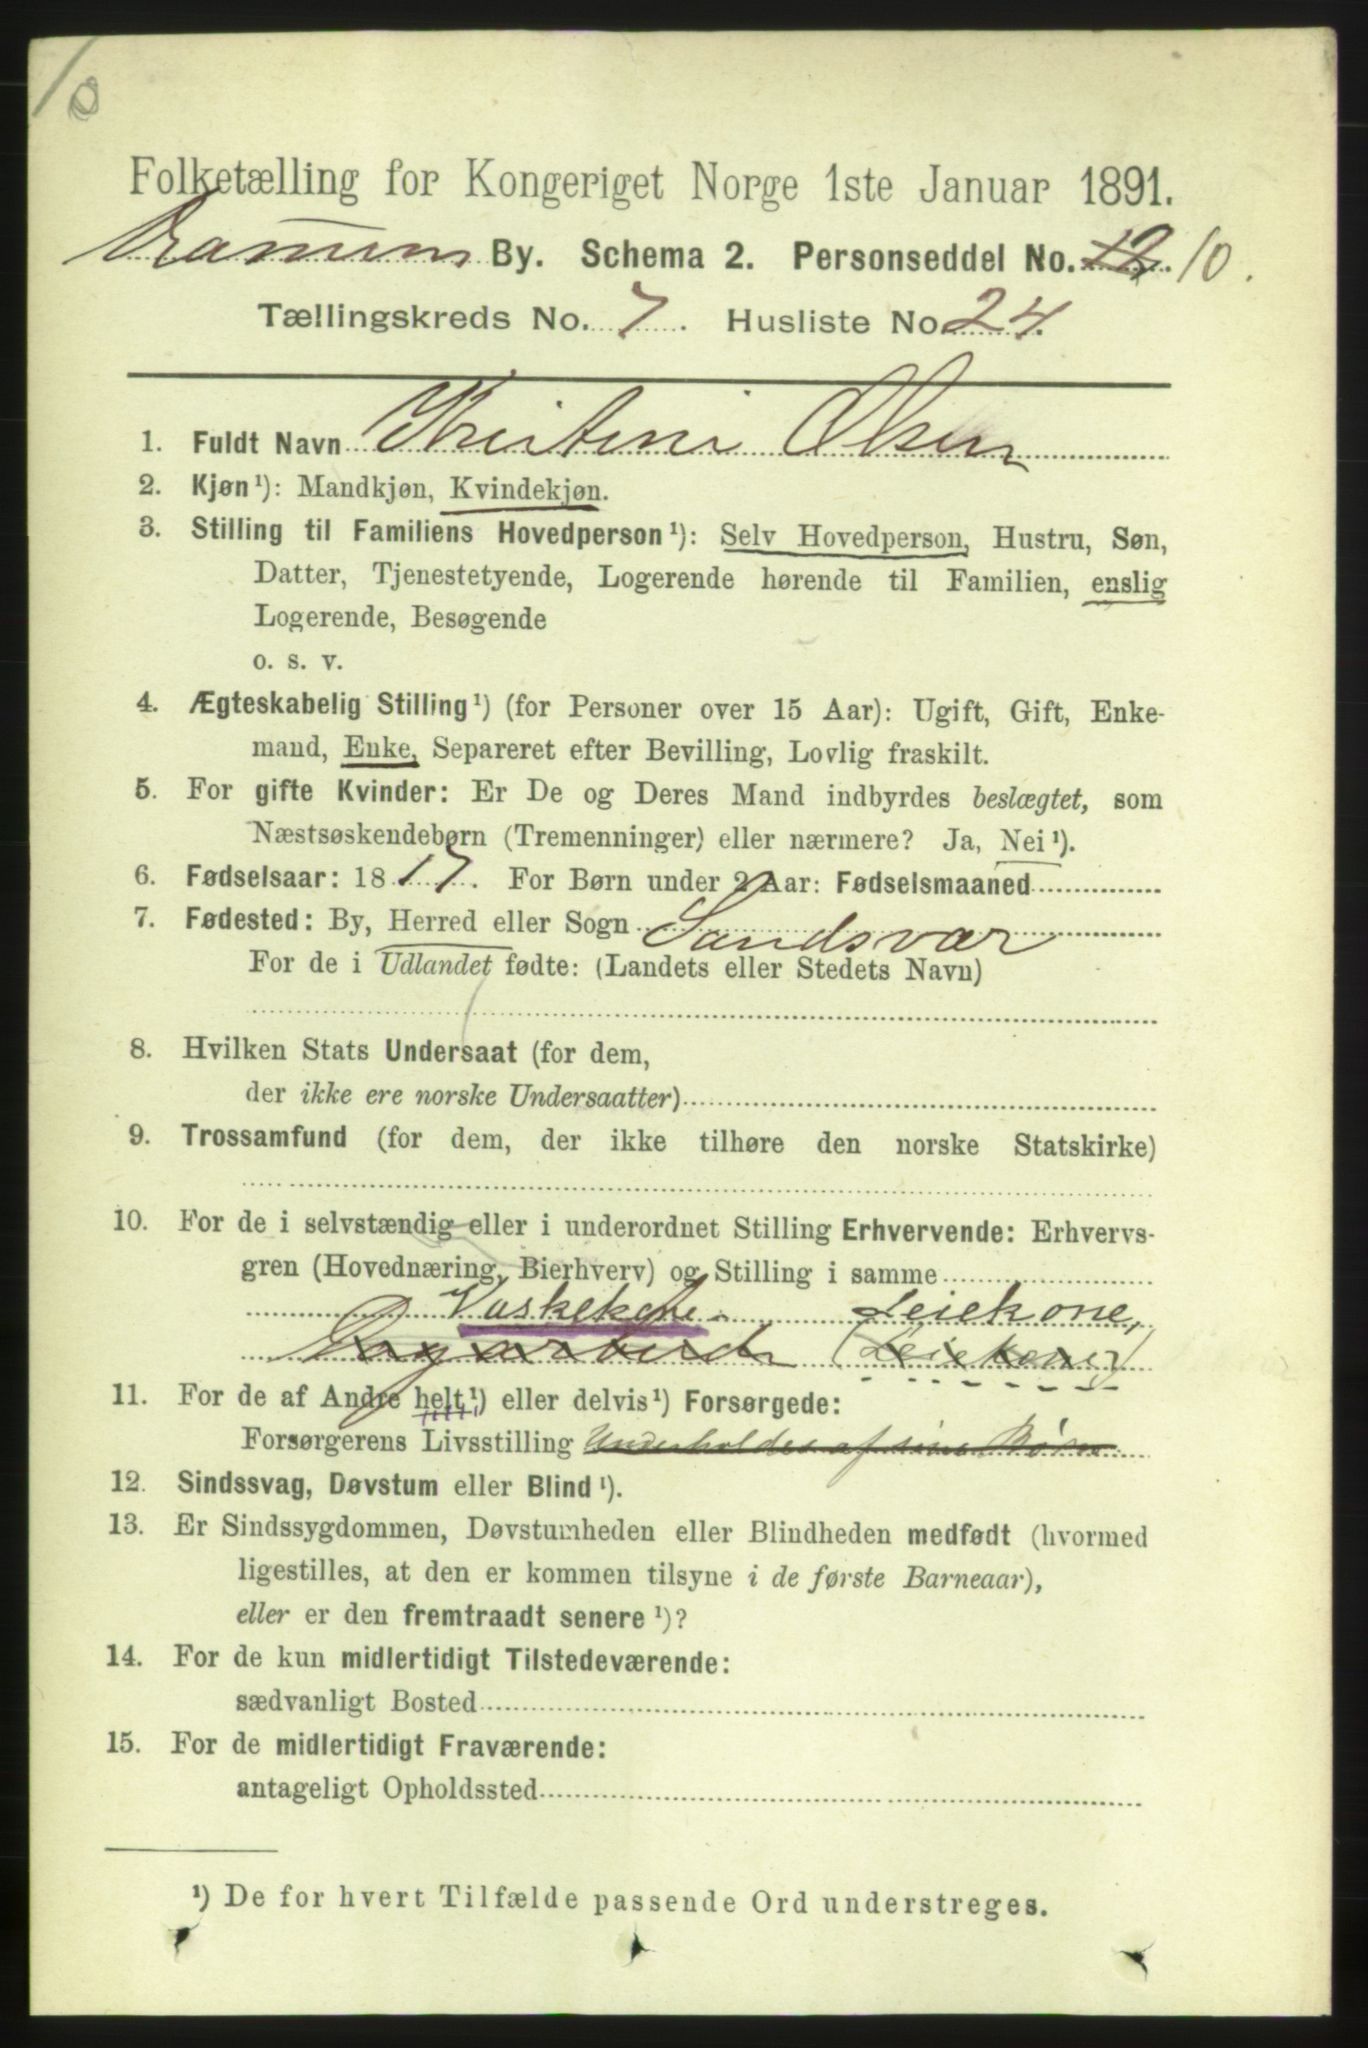 10
Folketælling for Kongeriget Norge 1ste Januar 1891.
Drammens By. Schema 2. Personseddel No. 12. 10.
Tællingskreds No. 7. Husliste No. 24.
1. Fuldt Navn Kristine Olsen
2. Kjøn ¹): Mandkjøn, Kvindekjøn.
3. Stilling til Familiens Hovedperson ¹): Selv Hovedperson, Hustru, Søn,
Datter, Tjenestetyende, Logerende hørende til Familien, enslig
Logerende, Besøgende
o. s. v.
4. Ægteskabelig Stilling ¹) (for Personer over 15 Aar): Ugift, Gift, Enke-
mand, Enke, Separeret efter Bevilling, Lovlig fraskilt.
5. For gifte Kvinder: Er De og Deres Mand indbyrdes beslægtet, som
Næstsøskendebørn (Tremenninger) eller nærmere? Ja, Nei ¹).
6. Fødselsaar: 1817. For Børn under 2 Aar: Fødselsmaaned
7. Fødested: By, Herred eller Sogn Sandsvær
For de i Udlandet fødte: (Landets eller Stedets Navn)
8. Hvilken Stats Undersaat (for dem,
der ikke ere norske Undersaatter)
9. Trossamfund (for dem, der ikke tilhøre den norske Statskirke)
10. For de i selvstændig eller i underordnet Stilling Erhvervende: Erhvervs-
gren (Hovednæring, Bierhverv) og Stilling i samme
Vaskekone Leiekone,
Dagarbeide (Leiekone)
11. For de af Andre helt ¹) eller delvis ¹) Forsørgede:
Forsørgerens Livsstilling Underholdes af sine Børn
12. Sindssvag, Døvstum eller Blind ¹).
13. Er Sindssygdommen, Døvstumheden eller Blindheden medfødt (hvormed
ligestilles, at den er kommen tilsyne i de første Barneaar),
eller er den fremtraadt senere ¹)?
14. For de kun midlertidigt Tilstedeværende:
sædvanligt Bosted
15. For de midlertidigt Fraværende:
antageligt Opholdssted
¹) De for hvert Tilfælde passende Ord understreges.